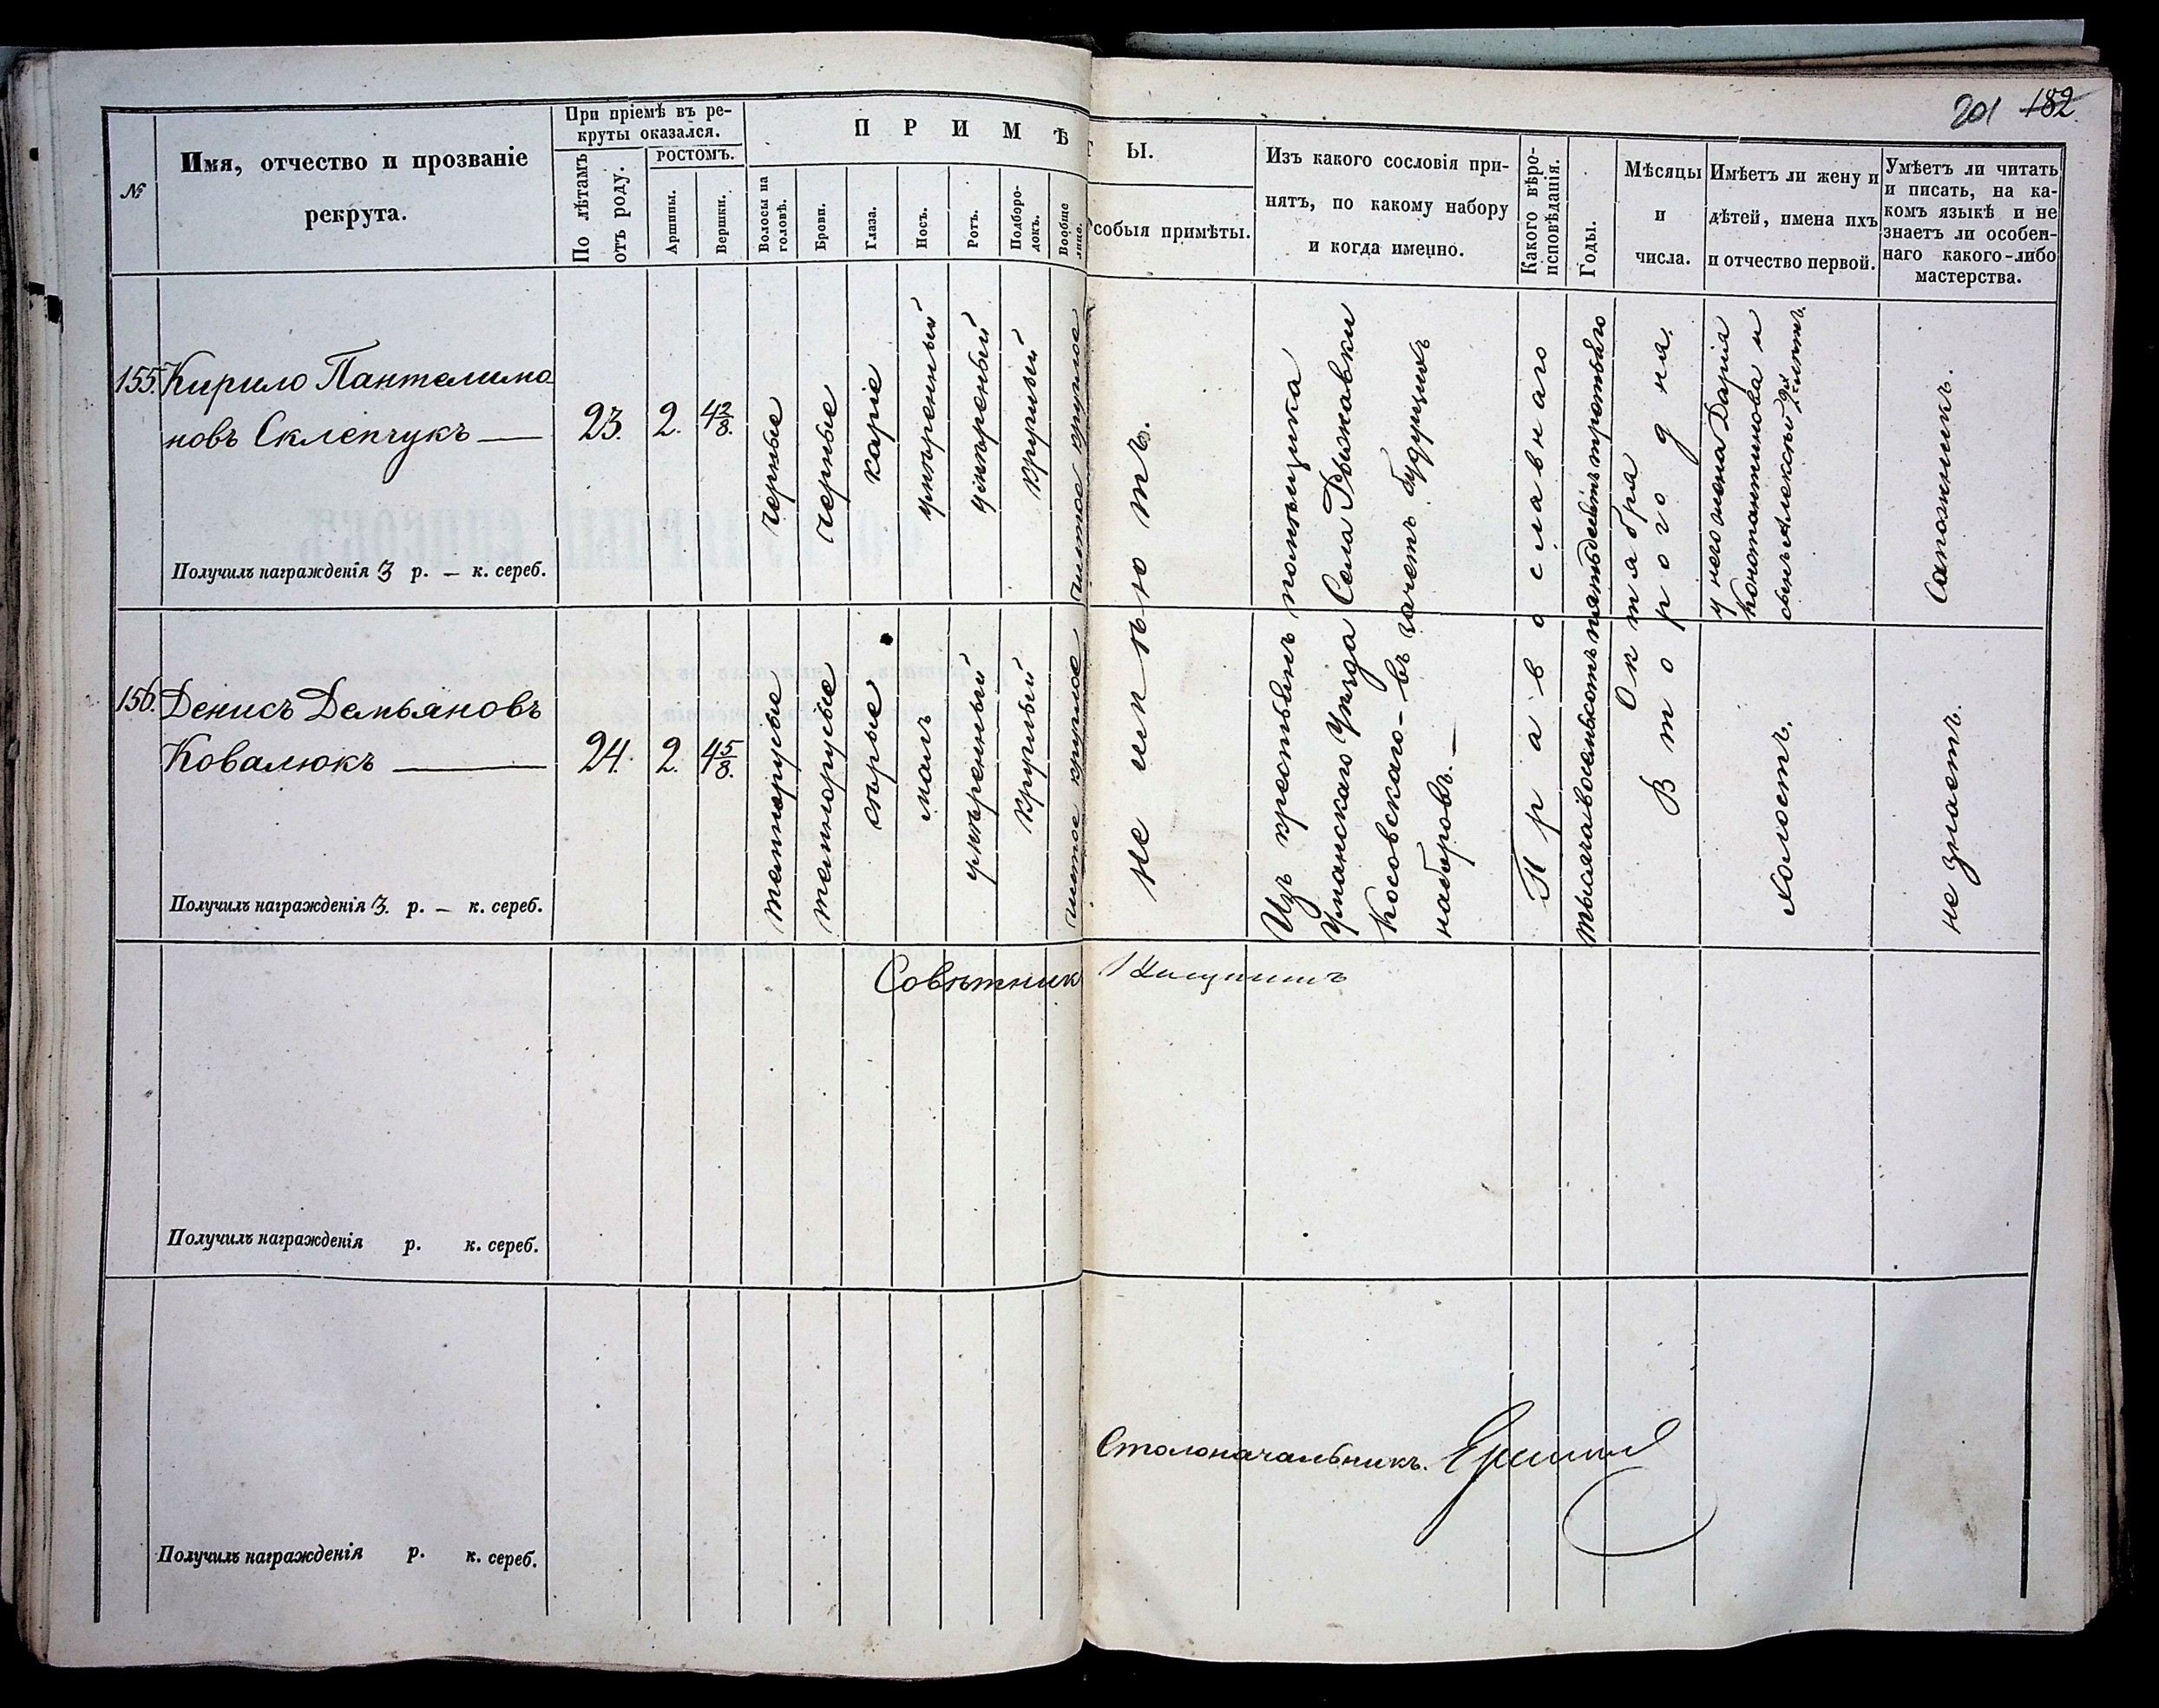 201 182
№
Имя, отчество и прозваніе
рекрута.
При пріемѣ въ ре-
круты оказался.
По лѣтамъ
отъ роду.
РОСТОМЪ.
Аршины.
Вершки.
ПРИМѢТЫ.
Волосы на
головѣ.
Брови.
Глаза.
Носъ.
Ротъ.
Подборо-
докъ.
Вообще
лице.
собыя примѣты.
Изъ какого сословія при-
нятъ, по какому набору
и когда именно.
Какого вѣро-
исповѣданія.
Годы.
Мѣсяцы
и
числа.
Имѣетъ ли жену и
дѣтей, имена ихъ
и отчество первой.
Умѣетъ ли читать
и писать, на ка-
комъ языкѣ и не
знаетъ ли особен-
наго какого-либо
мастерства.
155. Кирило Пантелимо
новъ Склепчукъ —
23.
2.
4 2/8.
черные
черные
каріе
умѣренный
умѣренный
круглый
чистое круглое
Получилъ награжденія 3 р. — к. сереб.
156. Денисъ Демьяновъ
Ковалюкъ —
24.
2.
4 5/8.
темнорусые
темнорусые
сѣрые
малъ
умѣренный
круглый
чистое круглое
Получилъ награжденія 3. р. — к. сереб.
не имѣютъ.
Изъ крестьянъ помѣщика
Уманскаго Уѣзда Села Рыжавки
Косовскаго – въ зачетъ будущихъ
наборовъ. —
Православнаго
тысяча восемьсотъ пятьдесятъ третьяго
Октября
Второго дня.
у него жена Дарія
Константинова и
сынъ Алексѣй
Холостъ.
Сапожникъ.
не знаетъ.
Совѣтникъ
Получилъ награжденія р. к. сереб.
Столоначальникъ.
Получилъ награжденія р. к. сереб.